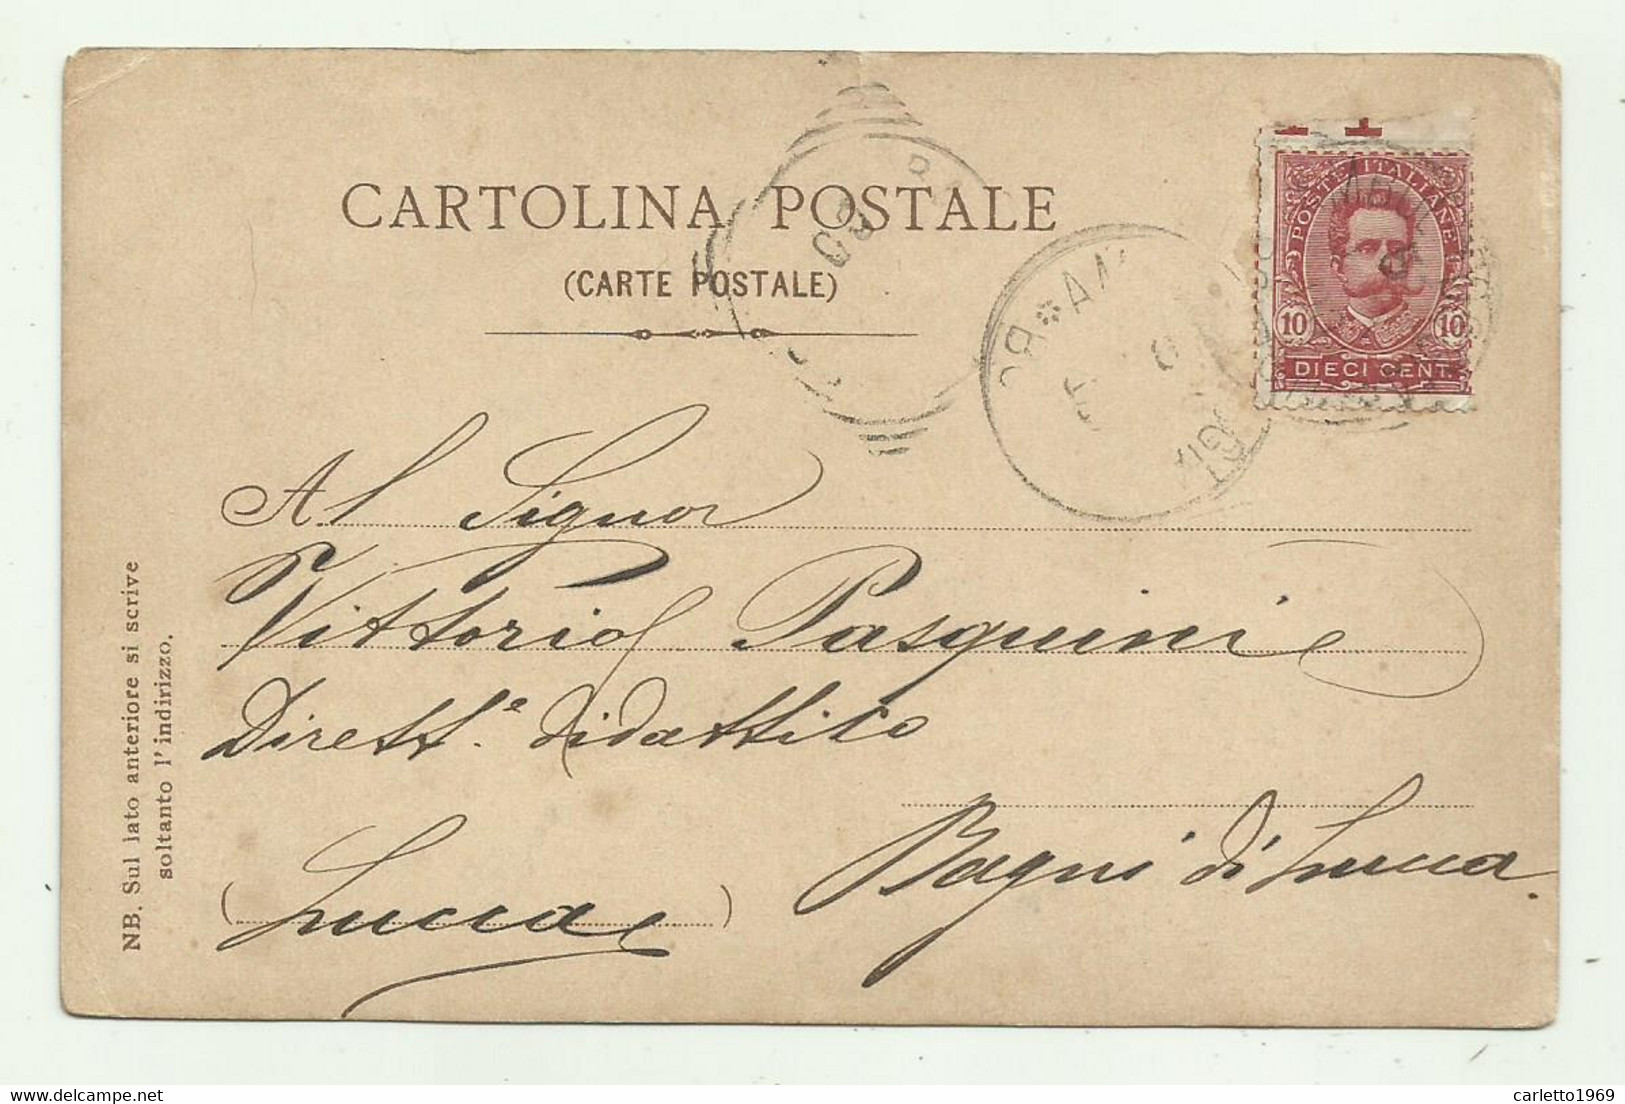 CARTOLINA POSTALE
(CARTE POSTALE)
POSTE ITALIANE
10 10
DIECI CENT.
Al Signor
Vittorio Pasquini
Dirett.e didattico
Bagni di Lucca.
(Lucca)
NB. Sul lato anteriore si scrive
soltanto l' indirizzo.
carletto1969